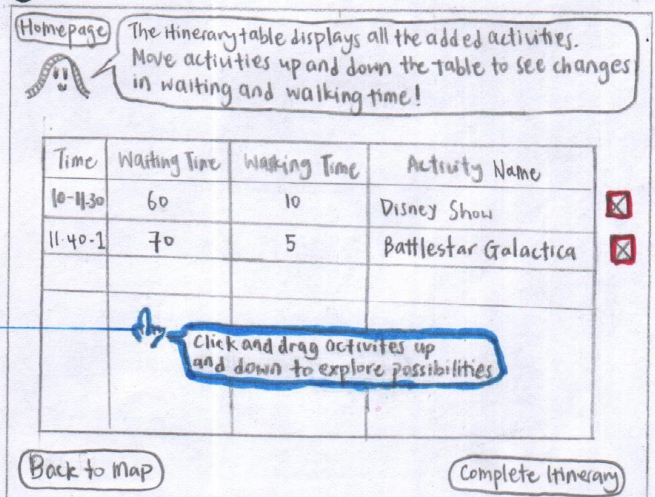 Homepage
The itinerary table displays all the added activities.
Move activities up and down the table to see changes
in waiting and walking time!
Time Waiting Time Walking Time Activity Name
10-11.30 60 10 Disney Show
11.40-1 70 5 Battlestar Galactica
Click and drag activites up
and down to explore possibilities
Back to Map
Complete Itinerary